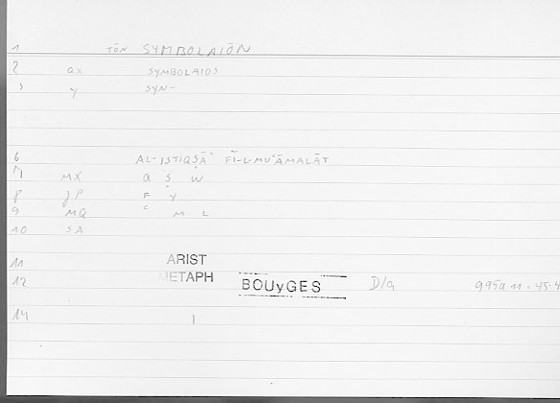 1 TŌN SYMBOLAIŌN
2 ax SYMBOLAIOS
3 y SYN-
6 AL-ISTIQṢĀʾ FĪ-L-MUʿĀMALĀT
7 MX a ṣ w
8 JP F Y
9 MQ ʿ M L
10 SA
11 ARIST
12 METAPH BOUyGES D/a 995a 11 · 45.4
14 1